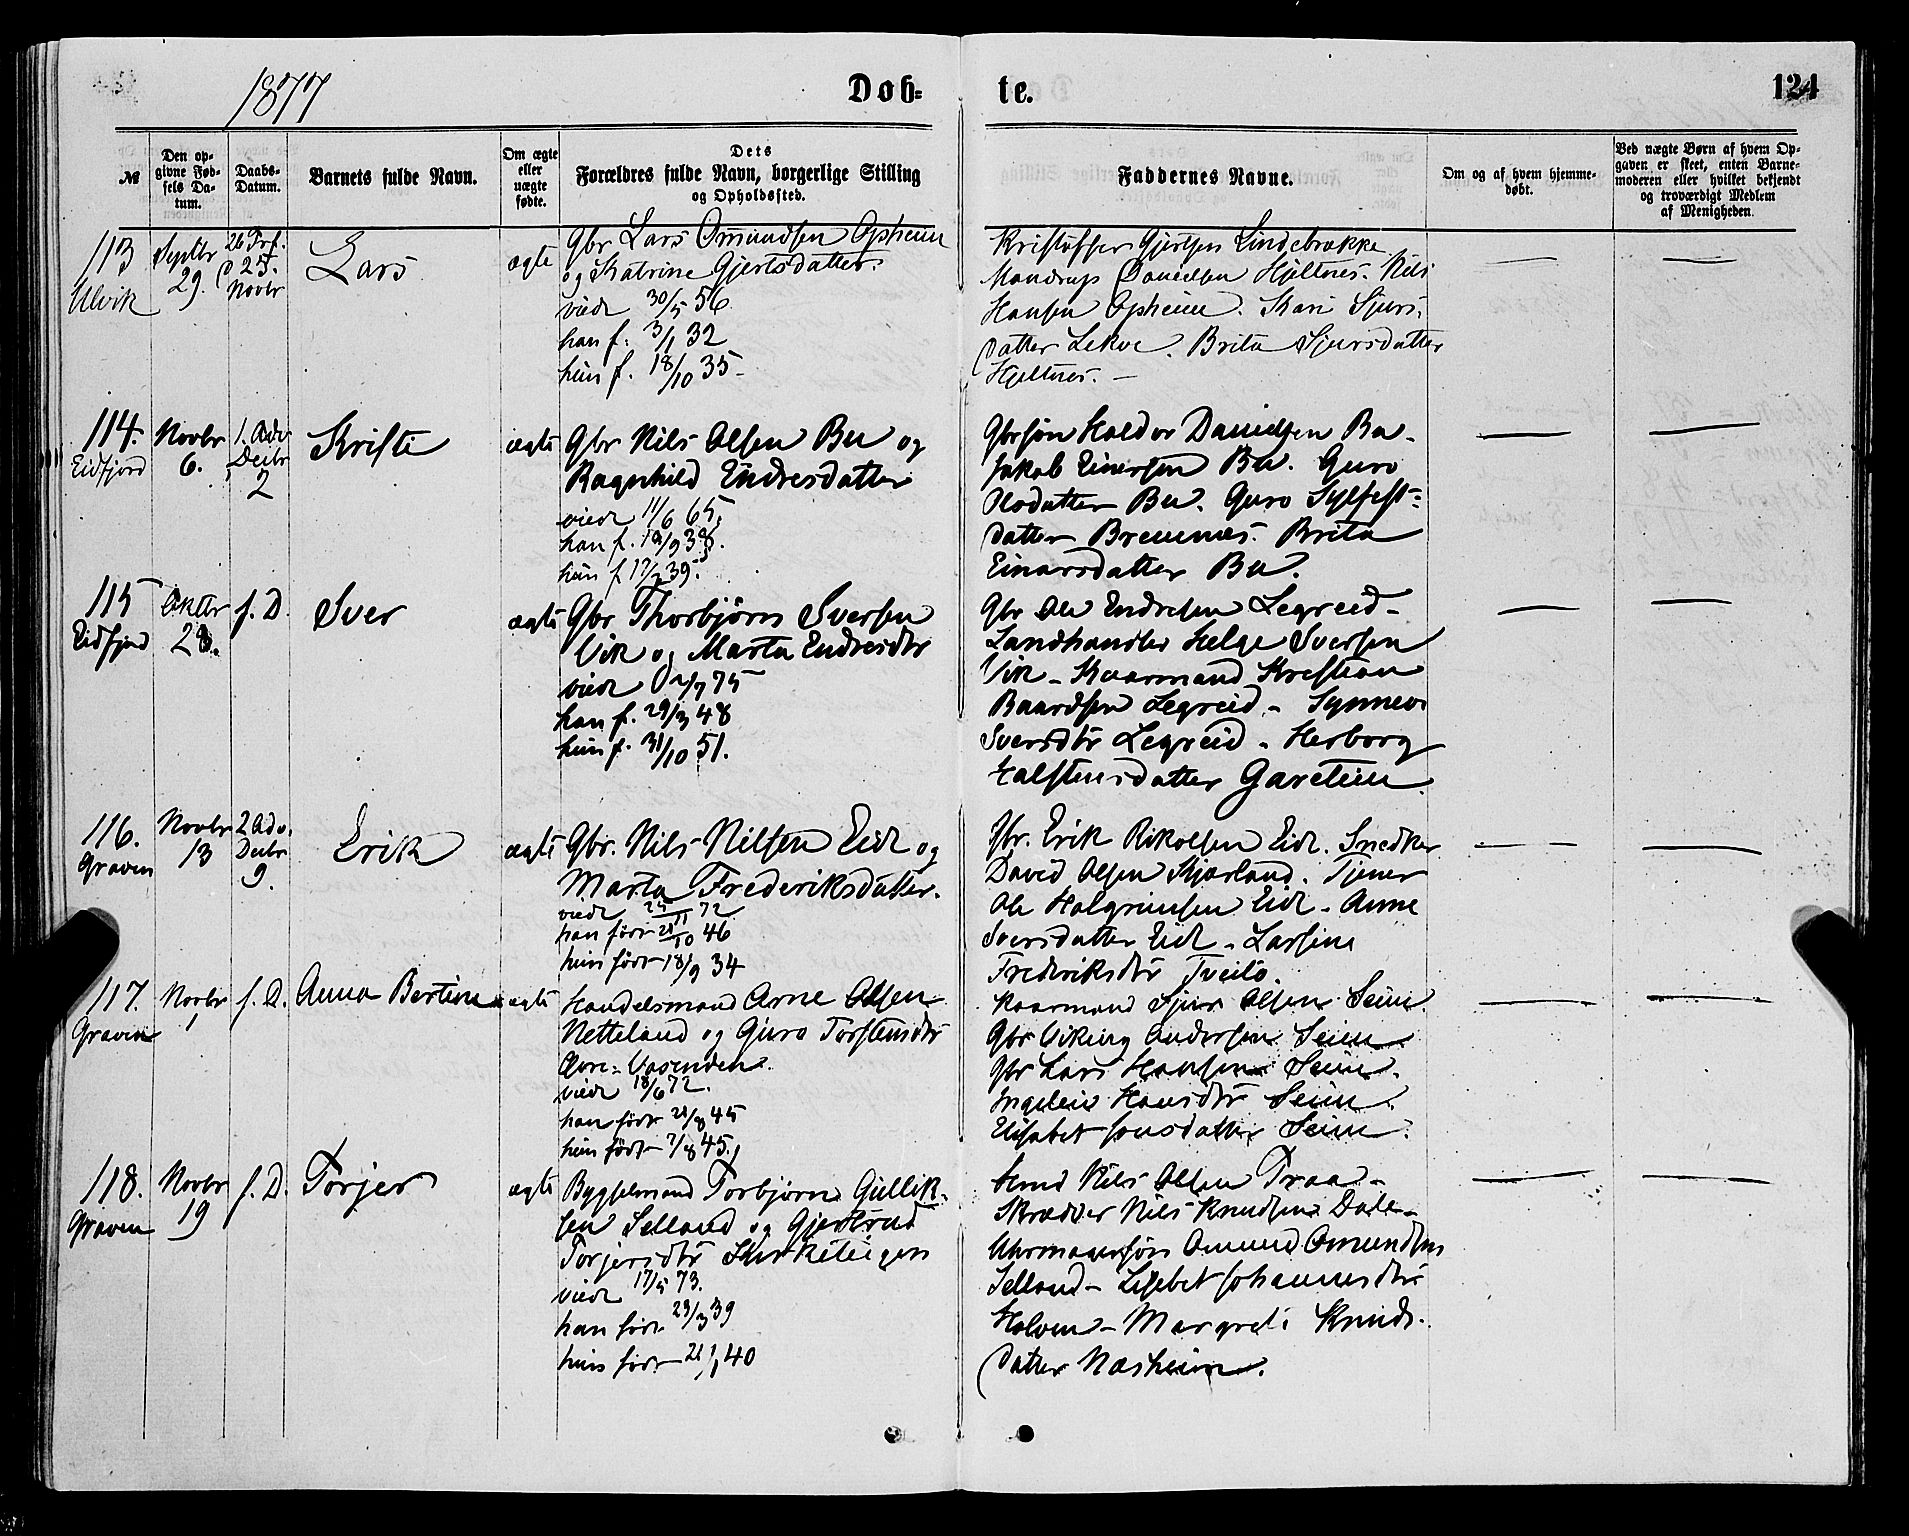 1877
Døb-
te.
124
№
Den op-
givne Fød-
sels Da-
tum.
Daabs-
Datum.
Barnets fulde Navn.
Om ægte
eller
uægte
fødte.
Dets
Forældres fulde Navn, borgerlige Stilling
og Opholdssted.
Faddernes Navne.
Om og af hvem hjemme-
døbt.
Ved uægte Børn af hvem Op-
gaven er skeet, enten Barne-
moderen eller hvilket bekjendt
og troværdigt Medlem
af Menigheden.
113
Ulvik
Septbr
29.
26 Tref.
d 25.
Novbr
Lars
ægte
Gbr Lars Omundsen Opheim
og Katrine Gjertsdatter.
viede 30/5 56
han f. 3/1 32
hun f. 18/10 35
Kristoffer Gjertsen Lindebrække
Mandrup Danielsen Hjeltnes. Nils
Hansen Opheim. Kari Sjurs-
datter Lekve. Brita Sjursdatter
Hjeltnes. —
114.
Eidfjord
Novbr
6.
1. Adv
Decbr
2
Kristi
ægte
Gbr Nils Olsen Bu og
Ragnhild Endresdatter
viede 11/6 65.
han f. 38.
hun f 39.
Gbrsøn Haldor Danielsen Bu.
Jakob Einersen Bu. Guro
Olsdatter Bu. Guro Sylfest-
datter Bremnes. Brita
Einarsdatter Bu.
115
Eidfjord
Oktbr
28.
f. D.
Sver
ægte
Gbr Thorbjørn Sversen
Vik og Marta Endresdtr
viede 2/7 75
han f. 29/3 48
hun f. 31/10 51.
Gbr Ole Endresen Legreid -
Landhandler Helge Sversen
Vik - Kaarmand Kristian
Baardsen Legreid - Synneve
Sversdtr Legreid - Herborg
Halstensdatter Garetun
116.
Graven
Novbr
13
2 Adv.
Decbr
9.
Erik
ægte
Gbr. Nils Nilsen Eide og
Marta Frederiksdatter.
viede 25/11 72
han født 28/10 46
hun født 18/9 34
Gbr. Erik Rikolsen Eide. Snedker
David Olsen Kjærland. Tjener
Ole Halgrimsen Eide - Anne
Sversdatter Eide - Larsine
Frederiksdtr Tveito.
117.
Graven
Novbr
1
f. D.
Anna Bertine
ægte
Handelsmand Arne Olsen
Netteland og Guro Torstensdtr
Øvre-Vasenden.
viede 18/6 72.
han født 21/8 45
hun født 7/8 45.
Kaarmand Sjur Olsen Seim.
Gbr Viking Andersen Seim.
Gbr Lars Hansen Seim.
Ingeleiv Hansdtr Seim.
Elisabet Jonsdatter Seim.
118.
Graven
Novbr
19
f. D.
Torjer
ægte
Bygselmand Torbjørn Gullik-
sen Selland og Gjertrud
Torjersdtr Skirketeigen
viede 17/5 73.
han født 23/3 39
hun født 21/1 40
Nils Olsen Traa -
Skrædder Nils Knudsen Dale -
Uhrmagersøn Omund Omundsen
Selland - Lisbet Johannesdtr
Holven - Margreti Knuds-
datter Næsheim.